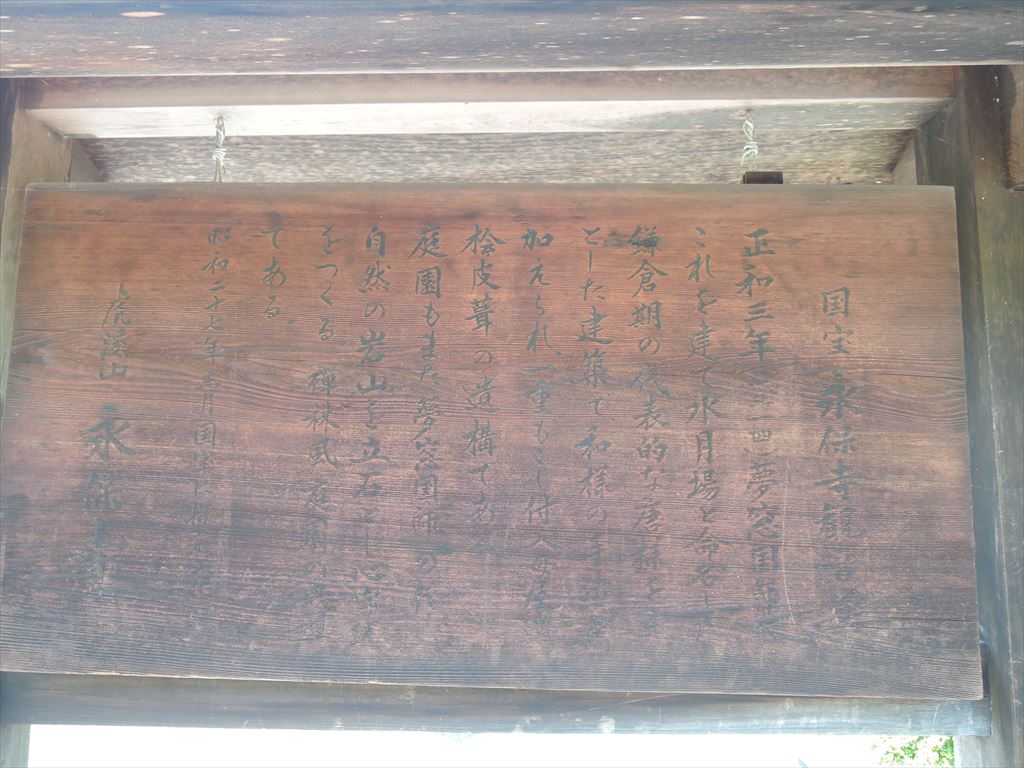 国宝 永保寺観音堂
正和三年(一三一四)夢窓国師
これを建て水月場と命名し
鎌倉期の代表的な唐様を
とした建築で和様の手法
加えられ一重もこし付入母屋造
桧皮葺の遺構である
庭園もまた夢窓国師の作
自然の岩山を立石とし心字池
をつくる。禅林風庭園の
である。
昭和二十七年三月国宝に指定
虎渓山 永保寺